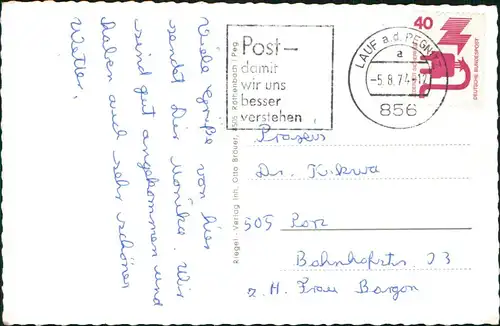 Viele Grüße von hier
sendet Dir Monika. Wir
sind gut angekommen und
haben auch sehr schönes
Wetter.
Riegel-Verlag Inh. Otto Bräuer, 8505 Röthenbach / Peg.
Post-
damit
wir uns
besser
verstehen
LAUF a.d. PEGNITZ
a
-5.8.74-17
856
40
DEUTSCHE BUNDESPOST
Praxis
Dr.
505 Porz
Bahnhofstr. 33
z. H. Frau Bargon